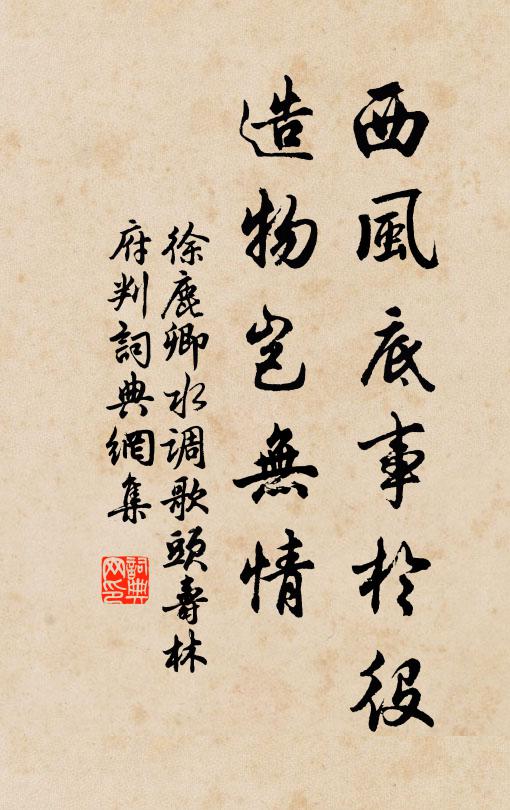 西風底事於役
造物豈無情
徐鹿卿水調歌頭壽林
府判詞典網集
詞典網印